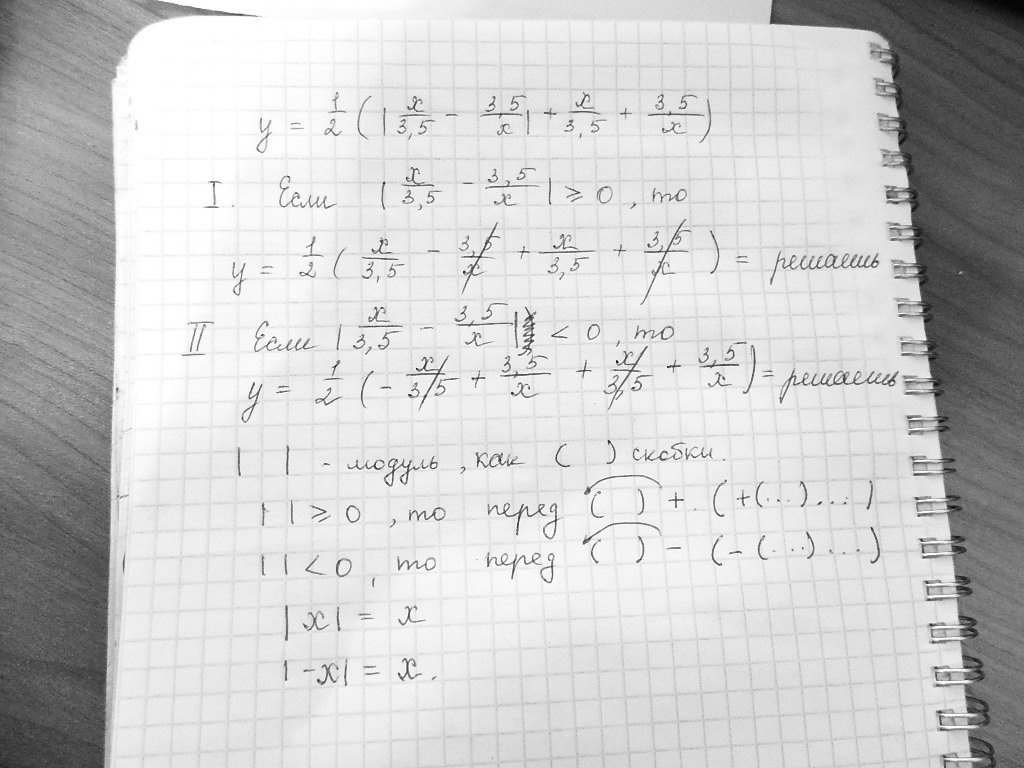 y = 1/2 (|x/3,5 - 3,5/x| + x/3,5 + 3,5/x)
I. Если |x/3,5 - 3,5/x| ≥ 0, то
y = 1/2 (x/3,5 - 3,5/x + x/3,5 + 3,5/x) = решаешь
II Если |x/3,5 - 3,5/x| < 0, то
y = 1/2 (- x/3,5 + 3,5/x + x/3,5 + 3,5/x) = решаешь
| | - модуль, как ( ) скобки.
| | ≥ 0, то перед ( ) + (+(...)...)
| | < 0, то перед ( ) - (-(...)...)
|x| = x
|-x| = x.